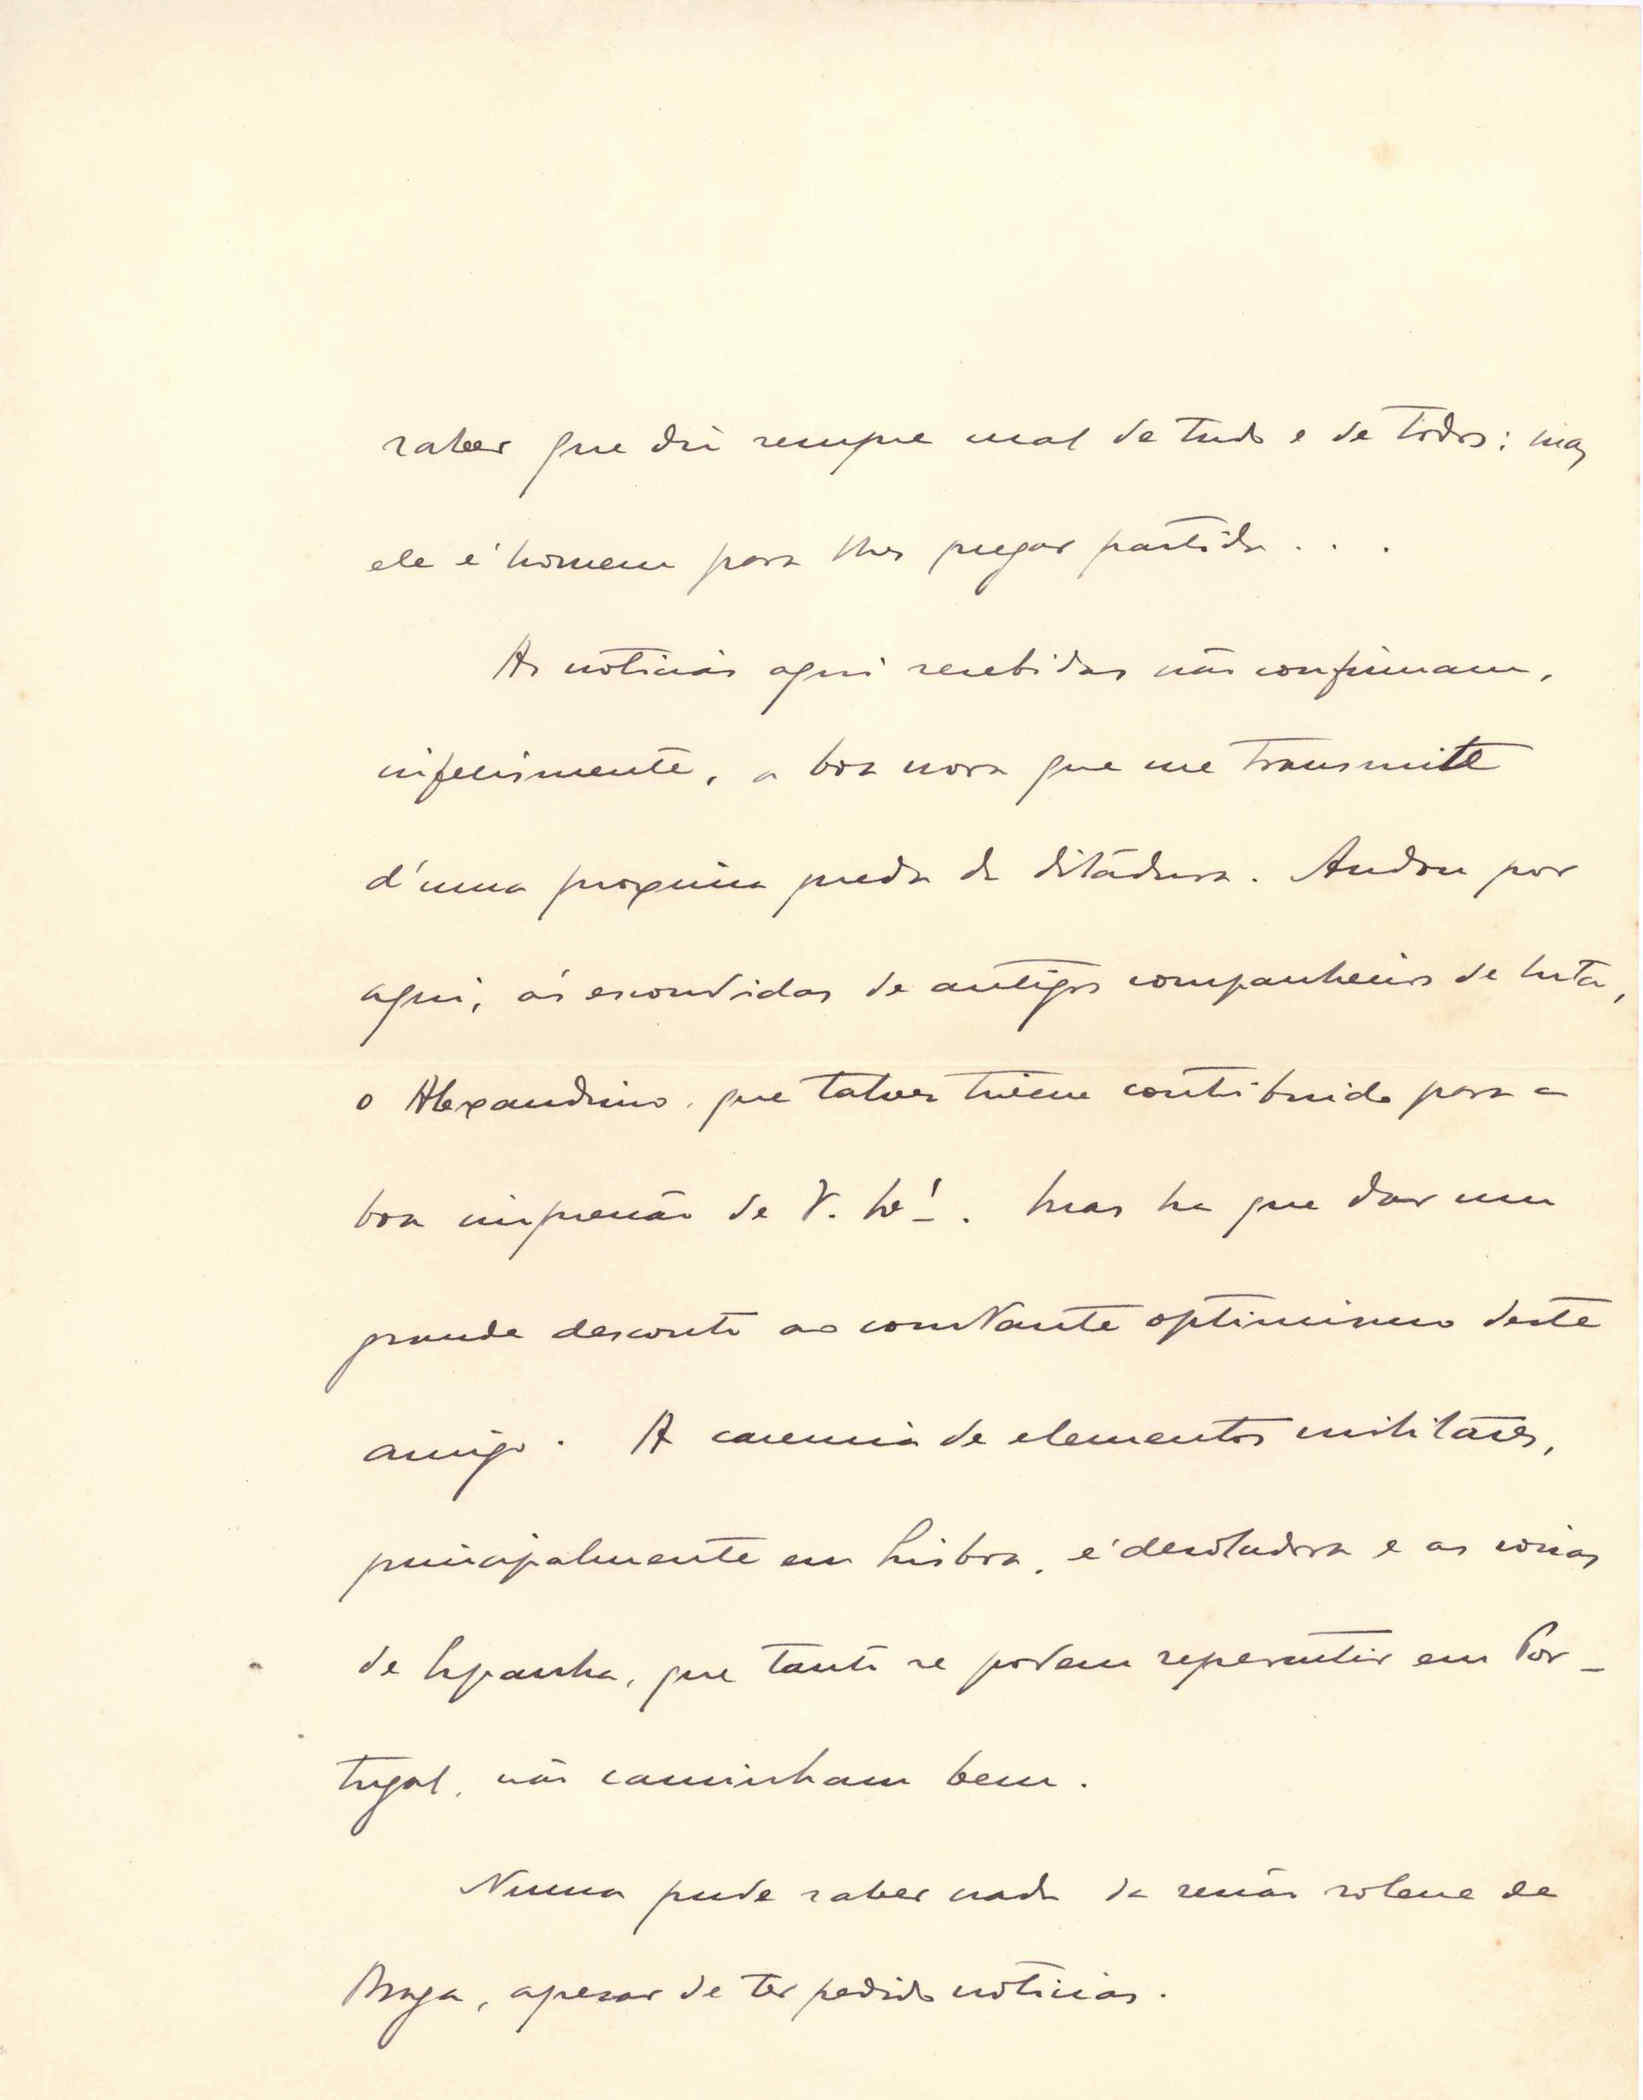 saber que diz sempre mal de tudo e de todos: mas
ele é homem para lhes pregar partida...
As noticias aqui recebidas não confirmam,
infelismente, a boa nova que me transmite
d'uma proxima queda da ditadura. Andou por
aqui, ás escondidas de antigos companheiros de luta,
o Alexandrino, que talvez tivesse contribuido para a
boa impressão de V. Mas ha que dar um
grande desconto ao constante optimismo deste
amigo. A carencia de elementos militares,
principalmente em Lisboa, é desoladora e as coisas
de Espanha, que tanto se podem repercutir em Por-
tugal, não caminham bem.
Nunca pude saber nada da sessão solene de
Braga, apesar de ter pedido noticias.